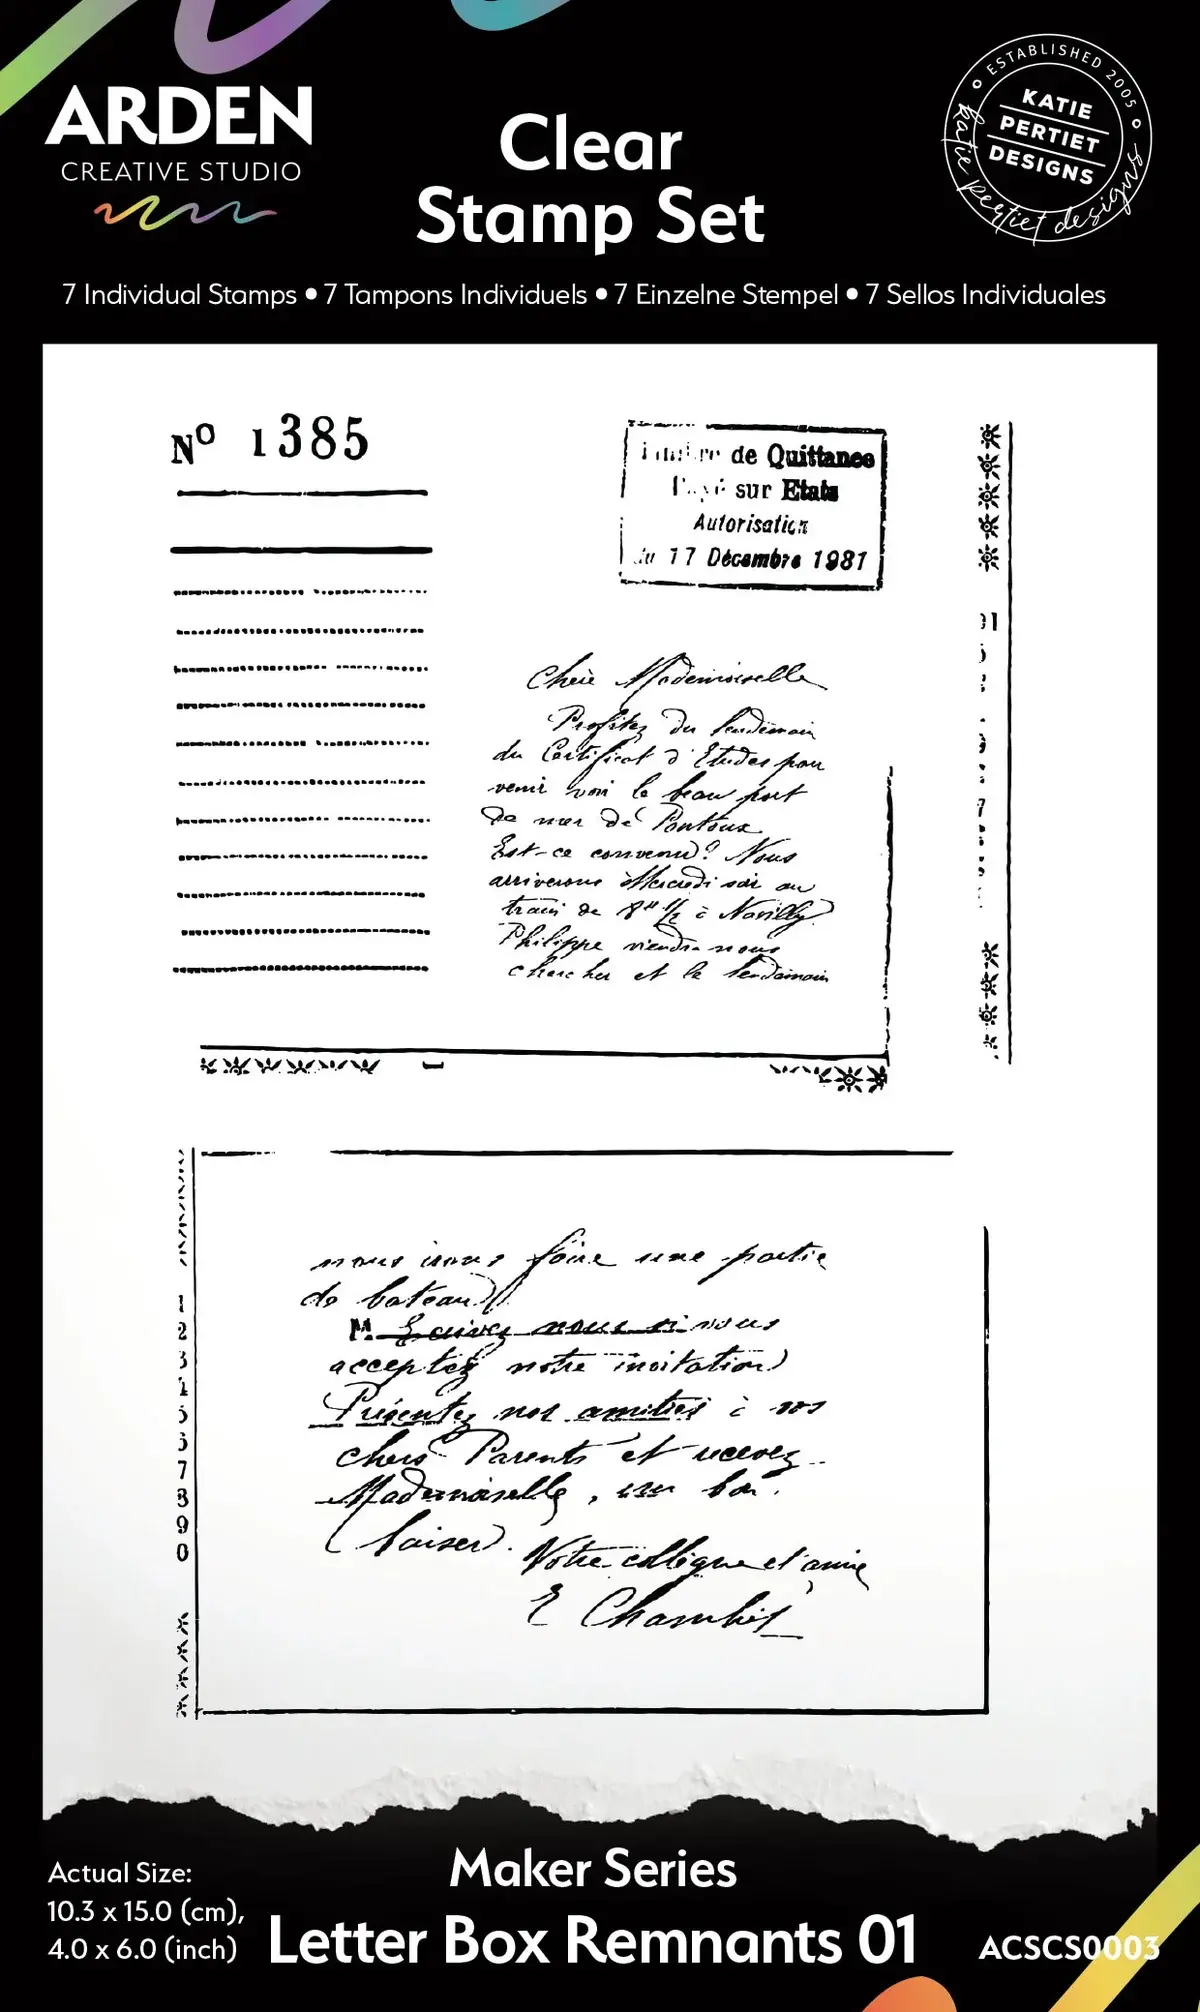 ARDEN
CREATIVE STUDIO
Clear
Stamp Set
ESTABLISHED 2005
KATIE
PERTIET
DESIGNS
katie pertiet designs
7 Individual Stamps • 7 Tampons Individuels • 7 Einzelne Stempel • 7 Sellos Individuales
Nº 1385
de Quittance
sur Etats
Autorisation
du 17 Décembre 1981
Chère Mademoiselle
Profitez du lendemain
du Certificat d'Etudes pour
venir voir le beau port
de mer de Pontoux
Est-ce convenu? Nous
arriverons Mercredi soir au
train de 8H 1/2 à Navilly
Philippe viendra nous
chercher et le lendemain
nous irons faire une partie
de bateau
M. Ecrivez nous si vous
acceptez notre invitation
Présentez nos amitiés à vos
chers Parents et recevez
Mademoiselle, un bon
baiser.
Votre collègue et amie
E
1
2
3
7
9
0
Actual Size:
10.3 x 15.0 (cm),
4.0 x 6.0 (inch)
Maker Series
Letter Box Remnants 01
ACSCS0003